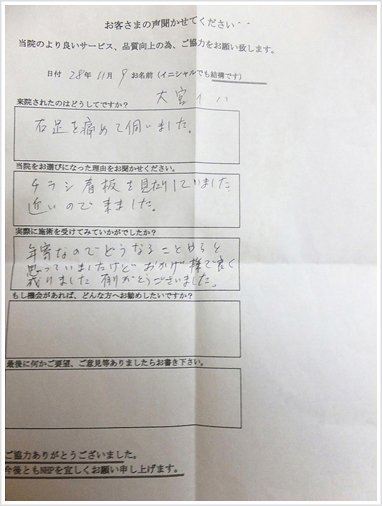 お客さまの声聞かせてください‥
当院のより良いサービス、品質向上の為、ご協力をお願い致します。
日付 28年 11月 9 お名前（イニシャルでも結構です）
大宮
来院されたのはどうしてですか？
右足を痛めて伺いました。
当院をお選びになった理由をお聞かせください。
チラシ 看板を見たりしていました
近いので来ました。
実際に施術を受けてみていかがでしたか？
年寄なのでどうなることやらと
思っていましたけど おかげ様で良く
成りました 有りがとうございました。
もし機会があれば、どんな方へお勧めしたいですか？
最後に何かご要望、ご意見等ありましたらお書き下さい。
ご協力ありがとうございました。
今後ともNHPを宜しくお願い申し上げます。